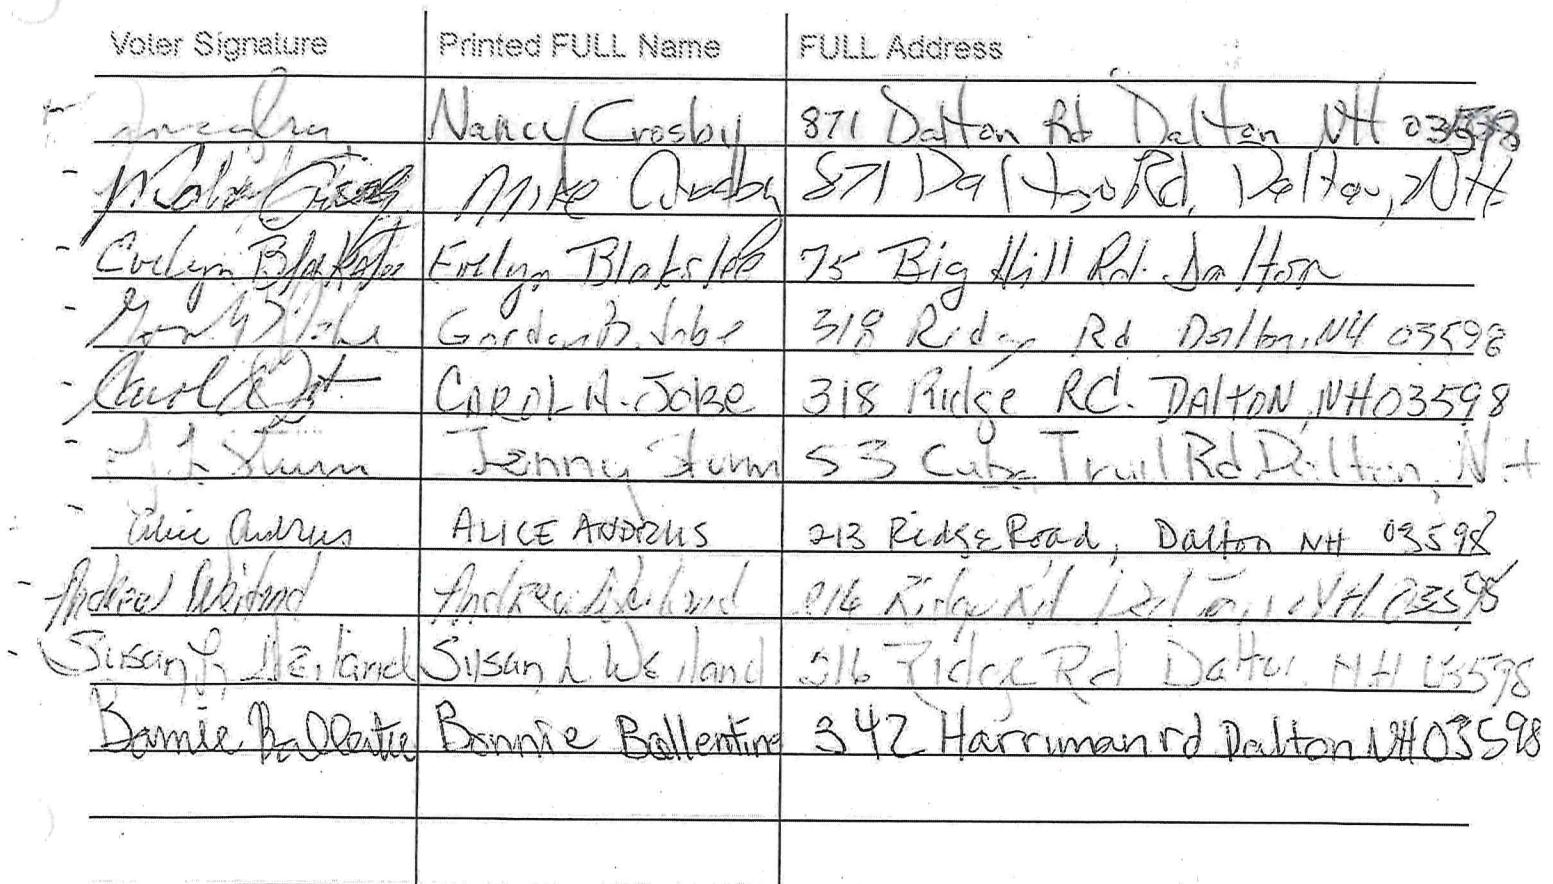 Voter Signature Printed FULL Name FULL Address
Nancy Crosby 871 Dalton Rd Dalton NH 03598
Mike Crosby 871 Dalton Rd, Dalton, NH
Evelyn Blakslee Evelyn Blakslee 75 Big Hill Rd. Dalton
Gordon B. Jobe 318 Ridge Rd Dalton, NH 03598
Carol CAROL A. JOBE 318 Ridge RD. DALTON, NH 03598
Sturm Jenny Sturm 53 Trail Rd Dalton, N.H
Alice Andrus ALICE ANDRUS 213 Ridge Road, Dalton NH 03598
Andrew Weiland Andrew Weiland Ridge Rd Dalton, NH 03598
Susan L Weiland Susan L Weiland 216 Ridge Rd Dalton NH 03598
Bonnie Ballentine Bonnie Ballentine 342 Harriman rd Dalton NH 03598